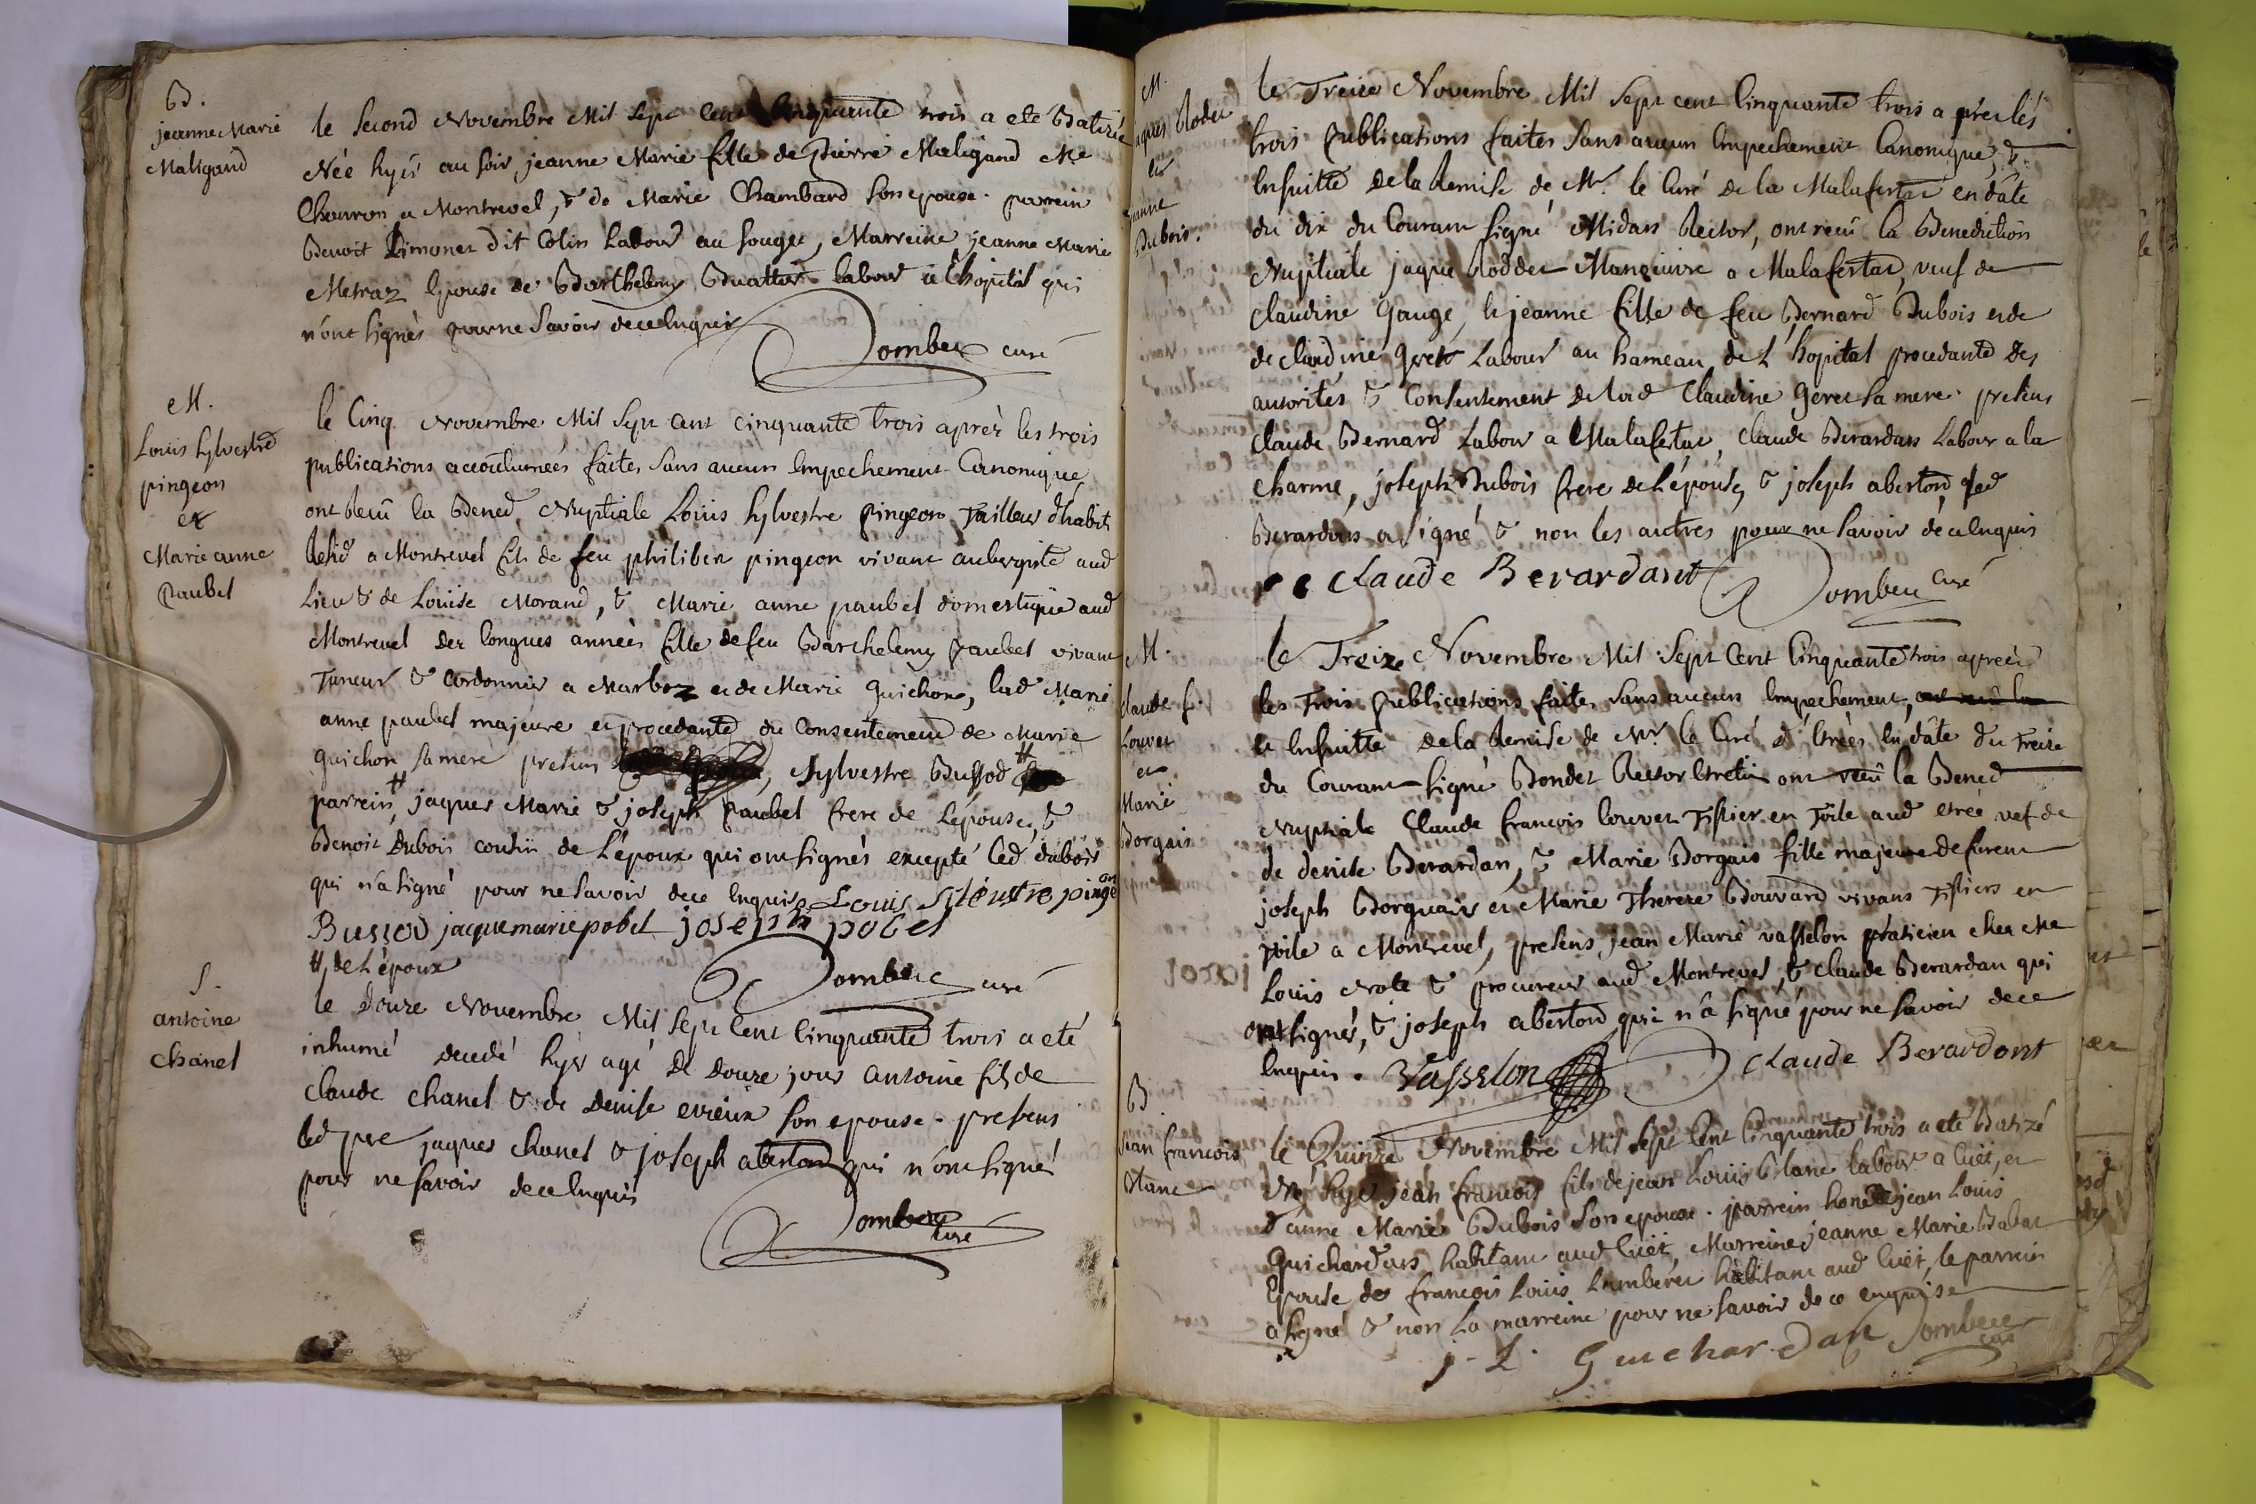 B.
jeanne Marie
Maligand
le second Novembre Mil sept cent Cinquante trois a eté Batizée
Née hyer au soir jeanne Marie fille de Pierre Maligand Me
Charron a Montrevel, & de Marie Chambard son epouse. parrein
Benoit Limonet dit Colin Labour au souget, Marreine jeanne Marie
Metraz Epouse de Barthelemy Buattier labour a l'hopital qui
n'ont signés pour ne savoir de ce enquis
Dombey curé
M.
Louis Sylvestre
pingeon
et
Marie anne
Paubel
le Cinq Novembre Mil sept cent cinquante trois aprèz les trois
publications accoutumées faites sans aucun Empechement Canonique
ont Receû la Bened. Nuptiale Louis Sylvestre Pingeon Tailleur d'habit
Resid a Montrevel fils de feu philibert pingeon vivant aubergiste aud
Lieu & de Louise Morand, & Marie anne paubel domestique aud
Montrevel dez longues années fille de feu Barthelemy Paubel vivant
Taneur & Cordonnier a Marboz et de Marie Guichon, lad Marie
anne paubel majeure et procedante du Consentement de Marie
guichon sa mere presens, Sylvestre Bussod #
parrein #, jaques Marie & joseph Paubel frere de L'épouse, &
Benoit Dubois cousin de L'époux qui ont signés excepté led. dubois
qui n'a signé pour ne savoir de ce enquis Louis Sileustre pingeon
Bussod jaque marie pobel joseph pobel
# de L'époux
Dombey curé
S.
antoine
chanel
le Douze Novembre Mil sept Cent Cinquante trois a eté
inhumé decedé hyer agé de douze jour antoine fils de
Claude Chanel & de Denise evieux son epouse. presens
led pere jaques chanel & joseph aberton qui n'ont signé
pour ne savoir de ce Enquis
Dombey curé
M.
jaques Rodet
et
jeanne
Dubois.
le Treize Novembre Mil Sept cent Cinquante trois a prez lés
trois publications faites sans aucun Empechement Canonique, &
Ensuitte de la Remise de Mr. le Curé de la Malafretaz en dâte
du dix du Courant signé Midan Rector, ont recû la Benediction
Nuptiale jaque Rodder Maneuvre a Malafertaz, veuf de
Claudine Gauge, & jeanne fille de feu Bernard Dubois et de
de Claudine Geret Labour au hameau de L'hopital procedante des
autorités & Consentement de lad Claudine geret sa mere. presens
Claude Bernard Labour a Malafertaz, Claude Berardan Labour a la
Charme, joseph Dubois frere de L'épouse, & joseph aberton, led
Berardan a signé & non les autres pour ne savoir de ce Enquis
Claude Berardant Dombey Curé
M.
Claude f.
Louvet
et
Marie
Borgais
le Treize Novembre Mil Sept Cent Cinquante trois aprèez
les Trois publications faites sans aucun Empechement, ont recû la
& Ensuitte de la Remise de Mr. le Curé d'Etrées en dâte du Treize
du Courant signé Bondet Rector ont recû la Bened
Nuptiale Claude francois louvet Tissier en Toile aud etrée vef de
de denise Berardan, & Marie Borgais fille majeure de furent
joseph Borguais et Marie Therere Bouvard vivans Tissiers en
Toile a Montrevel, presens jean Marie vasselon praticien chez Me
Louis Note & procureur aud Montrevel, & Claude Berardan qui
ont signés, & joseph aberton qui n'a signé pour ne savoir de ce
Enquis. Vasselon Claude Berardont
B
jean francois
Blanc
le Quinze Novembre Mil Sept Cent Cinquante trois a eté Batizé
Né hyer jean francois fils de jean Louis Blanc labour a Cuet, et
d'anne Marie Dubois son epouse. parrein honete jean Louis
Guichardan habitant aud Cuet, Marreine jeanne Marie
Epouse de francois Louis habitant aud Cuet, le parrein
a signé & non la marreine pour ne savoir de ce enquise
j. L. Guichardan Dombey curé